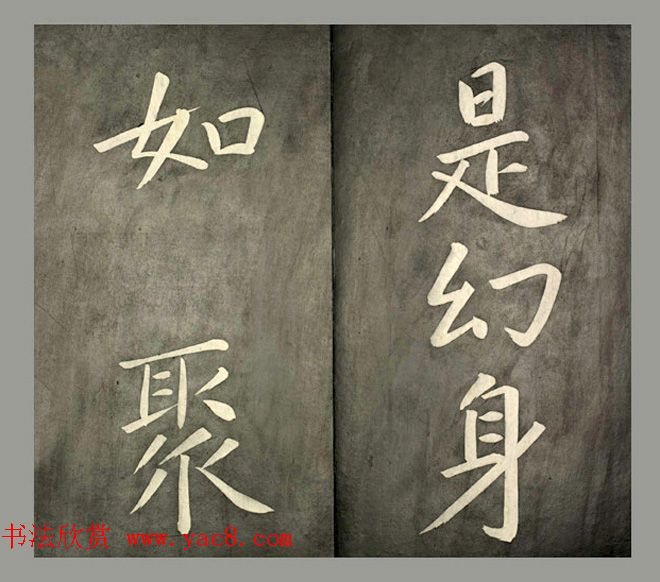 是幻身
如聚
书法欣赏 www.yac8.com